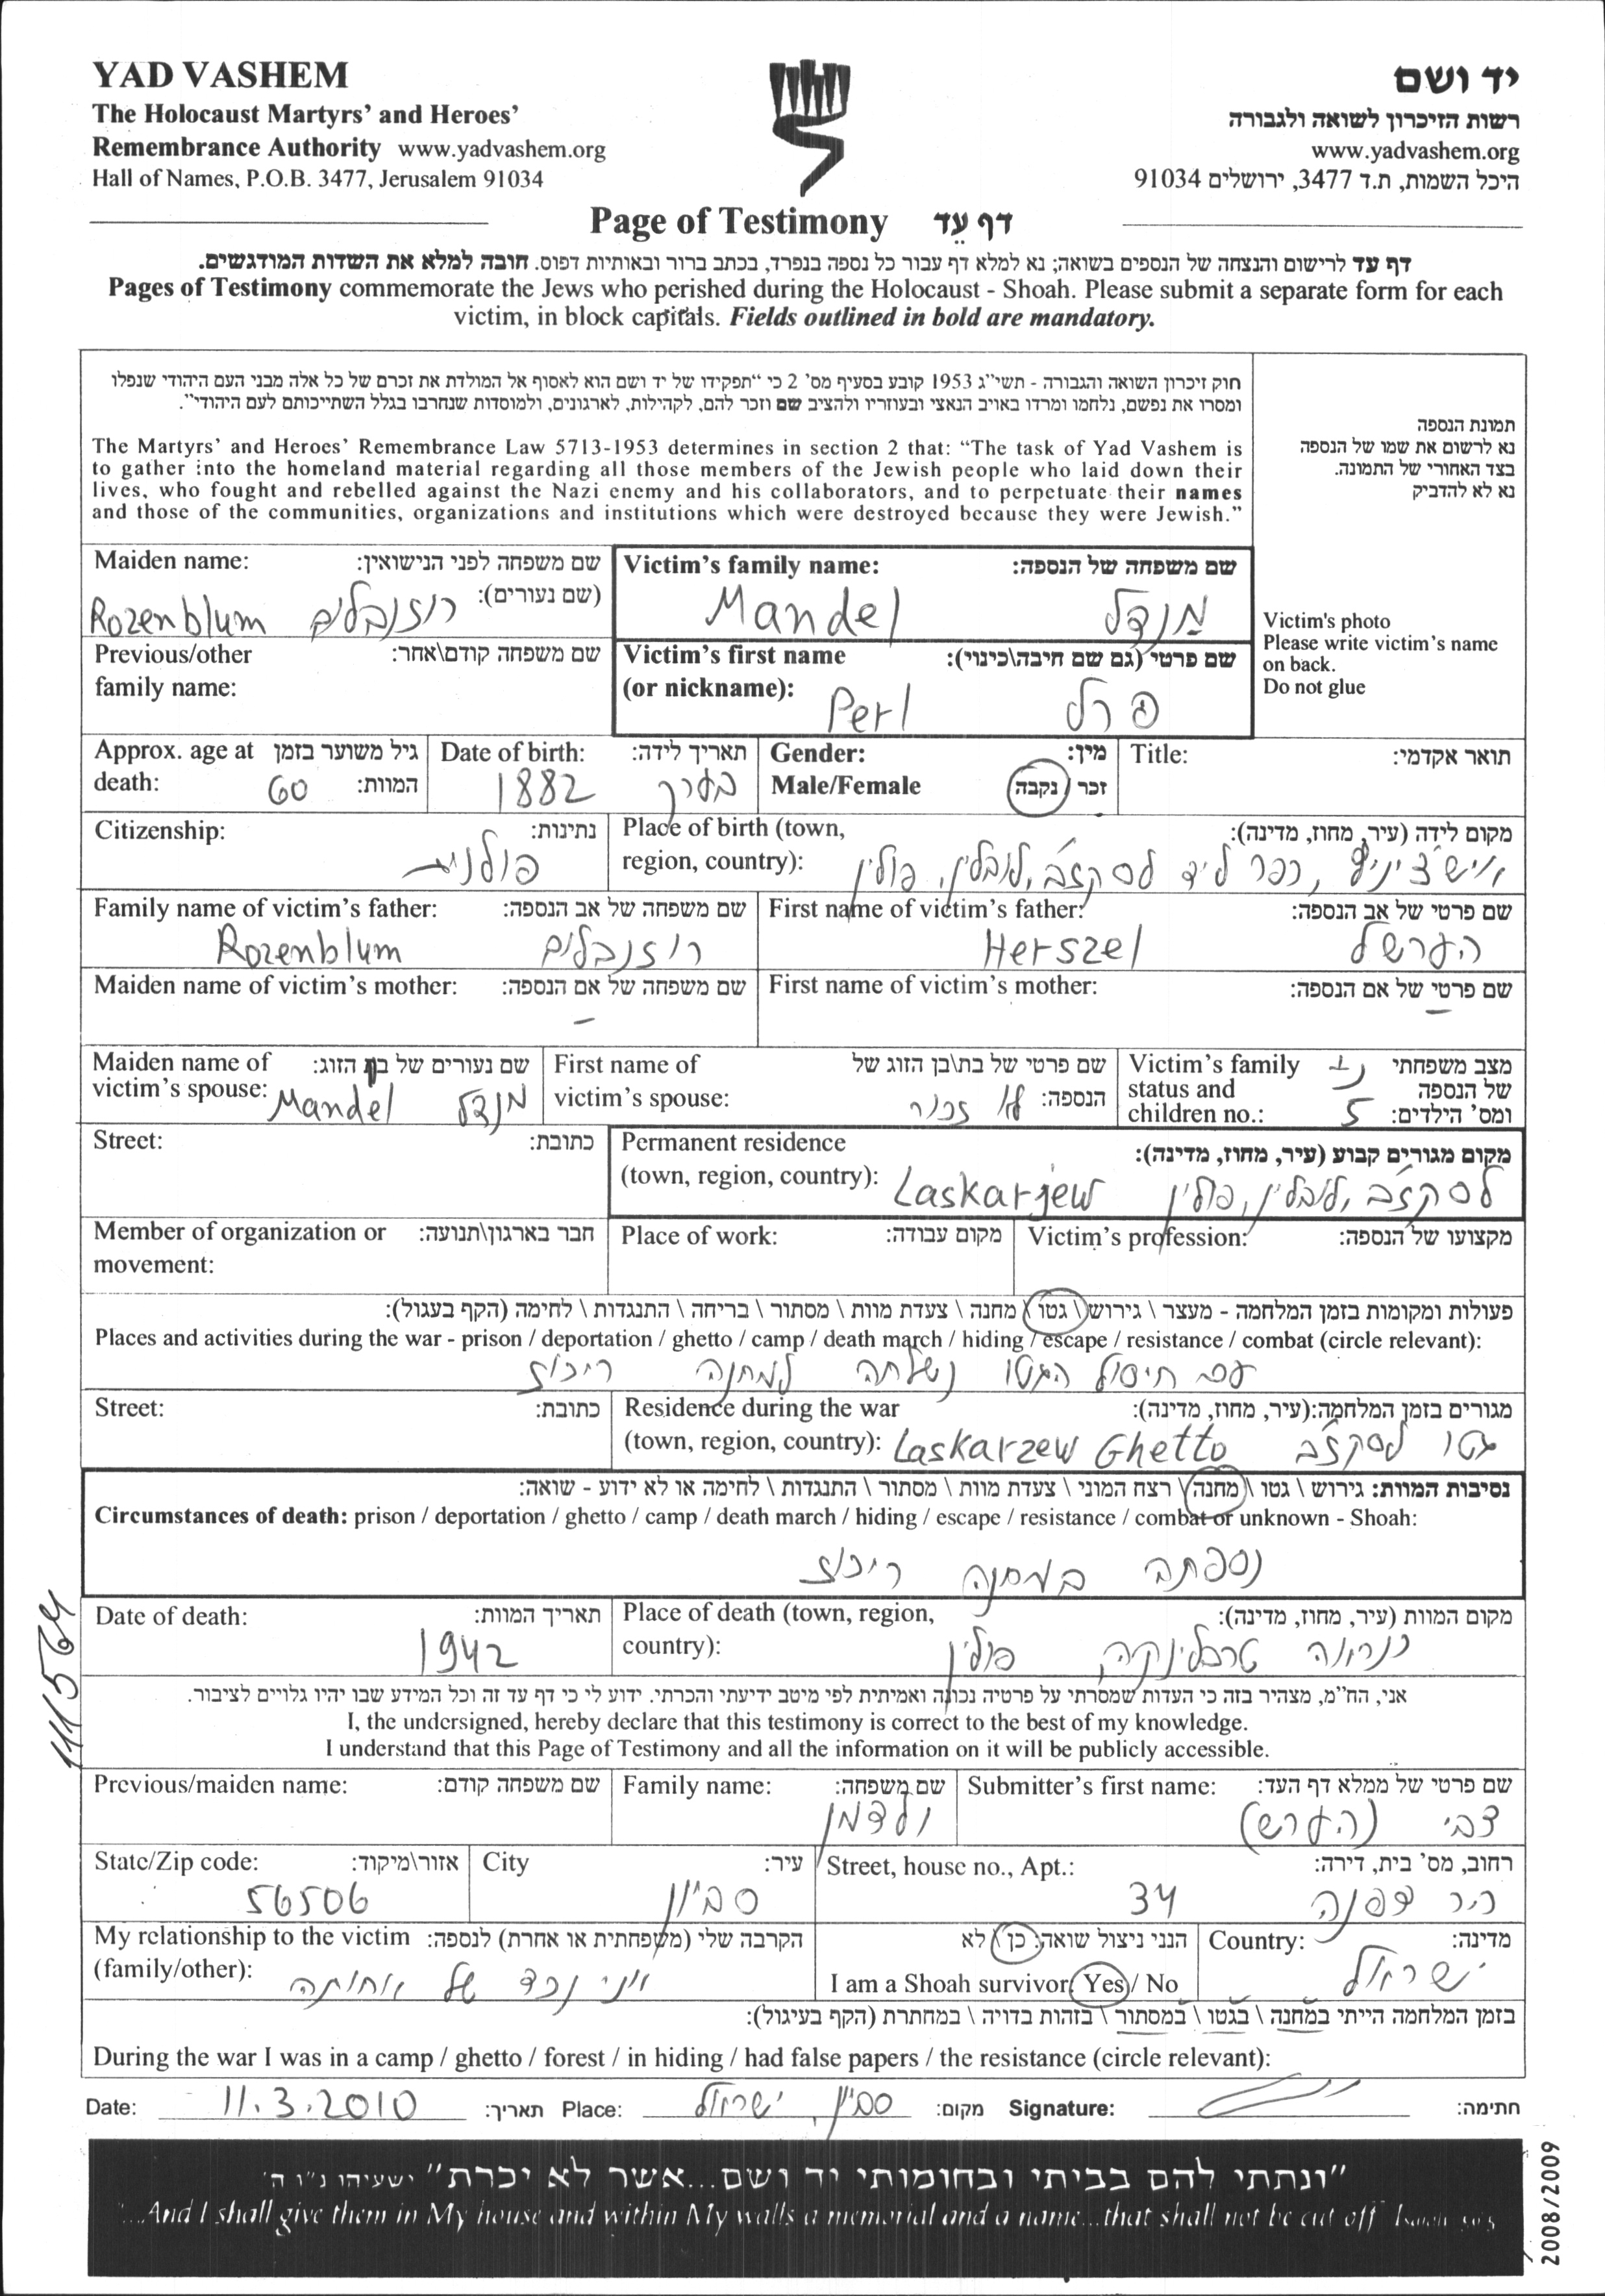 YAD VASHEM
The Holocaust Martyrs' and Heroes'
Remembrance Authority www.yadvashem.org
Hall of Names, P.O.B. 3477, Jerusalem 91034
יד ושם
רשות הזיכרון לשואה ולגבורה
www.yadvashem.org
היכל השמות, ת.ד 3477, ירושלים 91034
Page of Testimony דף עֵד
דף עד לרישום והנצחה של הנספים בשואה; נא למלא דף עבור כל נספה בנפרד, בכתב ברור ובאותיות דפוס. חובה למלא את השדות המודגשים.
Pages of Testimony commemorate the Jews who perished during the Holocaust - Shoah. Please submit a separate form for each
victim, in block capitals. Fields outlined in bold are mandatory.
חוק זיכרון השואה והגבורה - תשי"ג 1953 קובע בסעיף מס' 2 כי "תפקידו של יד ושם הוא לאסוף אל המולדת את זכרם של כל אלה מבני העם היהודי שנפלו
ומסרו את נפשם, נלחמו ומרדו באויב הנאצי ובעוזריו ולהציב שם וזכר להם, לקהילות, לארגונים, ולמוסדות שנחרבו בגלל השתייכותם לעם היהודי".
The Martyrs' and Heroes' Remembrance Law 5713-1953 determines in section 2 that: "The task of Yad Vashem is
to gather into the homeland material regarding all those members of the Jewish people who laid down their
lives, who fought and rebelled against the Nazi enemy and his collaborators, and to perpetuate their names
and those of the communities, organizations and institutions which were destroyed because they were Jewish."
תמונת הנספה
נא לרשום את שמו של הנספה
בצד האחורי של התמונה.
נא לא להדביק
Victim's photo
Please write victim's name
on back.
Do not glue
Maiden name: שם משפחה לפני הנישואין:
(שם נעורים):
Rozenblum רוזנבלום
Victim's family name: שם משפחה של הנספה:
Mandel מנדל
Previous/other שם משפחה קודם\אחר:
family name:
Victim's first name שם פרטי (גם שם חיבה\כינוי):
(or nickname): Perl פרל
Approx. age at גיל משוער בזמן
death: 60 המוות:
Date of birth: תאריך לידה:
1882 בערך
Gender: מין:
Male/Female זכר / נקבה
Title: תואר אקדמי:
Citizenship: נתינות:
פולנית
Place of birth (town, מקום לידה (עיר, מחוז, מדינה):
region, country): כפר ליד לסקז'ב, לובלין, פולין
Family name of victim's father: שם משפחה של אב הנספה:
Rozenblum רוזנבלום
First name of victim's father: שם פרטי של אב הנספה:
Herszel הערשל
Maiden name of victim's mother: שם משפחה של אם הנספה:
–
First name of victim's mother: שם פרטי של אם הנספה:
–
Maiden name of שם נעורים של בן הזוג:
victim's spouse: Mandel מנדל
First name of שם פרטי של בת\בן הזוג של
victim's spouse: הנספה: לא זכור
Victim's family מצב משפחתי
status and של הנספה
children no.: 5 ומס' הילדים:
Street: כתובת:
Permanent residence מקום מגורים קבוע (עיר, מחוז, מדינה):
(town, region, country): Laskarjew לסקז'ב, לובלין, פולין
Member of organization or חבר בארגון\תנועה:
movement:
Place of work: מקום עבודה:
Victim's profession: מקצועו של הנספה:
פעולות ומקומות בזמן המלחמה - מעצר \ גירוש \ גטו \ מחנה \ צעדת מוות \ מסתור \ בריחה \ התנגדות \ לחימה (הקף בעגול):
Places and activities during the war - prison / deportation / ghetto / camp / death march / hiding / escape / resistance / combat (circle relevant):
עם חיסול הגטו נשלחה למחנה ריכוז
Street: כתובת:
Residence during the war מגורים בזמן המלחמה:(עיר, מחוז, מדינה):
(town, region, country): Laskarzew Ghetto גטו לסקז'ב
נסיבות המוות: גירוש \ גטו \ מחנה \ רצח המוני \ צעדת מוות \ מסתור \ התנגדות \ לחימה או לא ידוע - שואה:
Circumstances of death: prison / deportation / ghetto / camp / death march / hiding / escape / resistance / combat or unknown - Shoah:
נספתה במחנה ריכוז
Date of death: תאריך המוות:
1942
Place of death (town, region, מקום המוות (עיר, מחוז, מדינה):
country): כנראה טרבלינקה פולין
אני, הח"מ, מצהיר בזה כי העדות שמסרתי על פרטיה נכונה ואמיתית לפי מיטב ידיעתי והכרתי. ידוע לי כי דף עד זה וכל המידע שבו יהיו גלויים לציבור.
I, the undersigned, hereby declare that this testimony is correct to the best of my knowledge.
I understand that this Page of Testimony and all the information on it will be publicly accessible.
Previous/maiden name: שם משפחה קודם:
Family name: שם משפחה:
ולדמן
Submitter's first name: שם פרטי של ממלא דף העד:
צבי (הערש)
State/Zip code: אזור\מיקוד:
56506
City עיר:
סביון
Street, house no., Apt.: רחוב, מס' בית, דירה:
34
My relationship to the victim הקרבה שלי (משפחתית או אחרת) לנספה:
(family/other): אני נכד של אחותה
הנני ניצול שואה: כן \ לא
I am a Shoah survivor: Yes / No
Country: מדינה:
ישראל
בזמן המלחמה הייתי במחנה \ בגטו \ במסתור \ בזהות בדויה \ במחתרת (הקף בעיגול):
During the war I was in a camp / ghetto / forest / in hiding / had false papers / the resistance (circle relevant):
Date: 11.3.2010 תאריך: Place: סביון, ישראל מקום: Signature: חתימה:
"ונתתי להם בביתי ובחומותי יד ושם...אשר לא יכרת" ישעיהו נ"ו ה'
"...And I shall give them in My house and within My walls a memorial and a name...that shall not be cut off"
111564
2008/2009